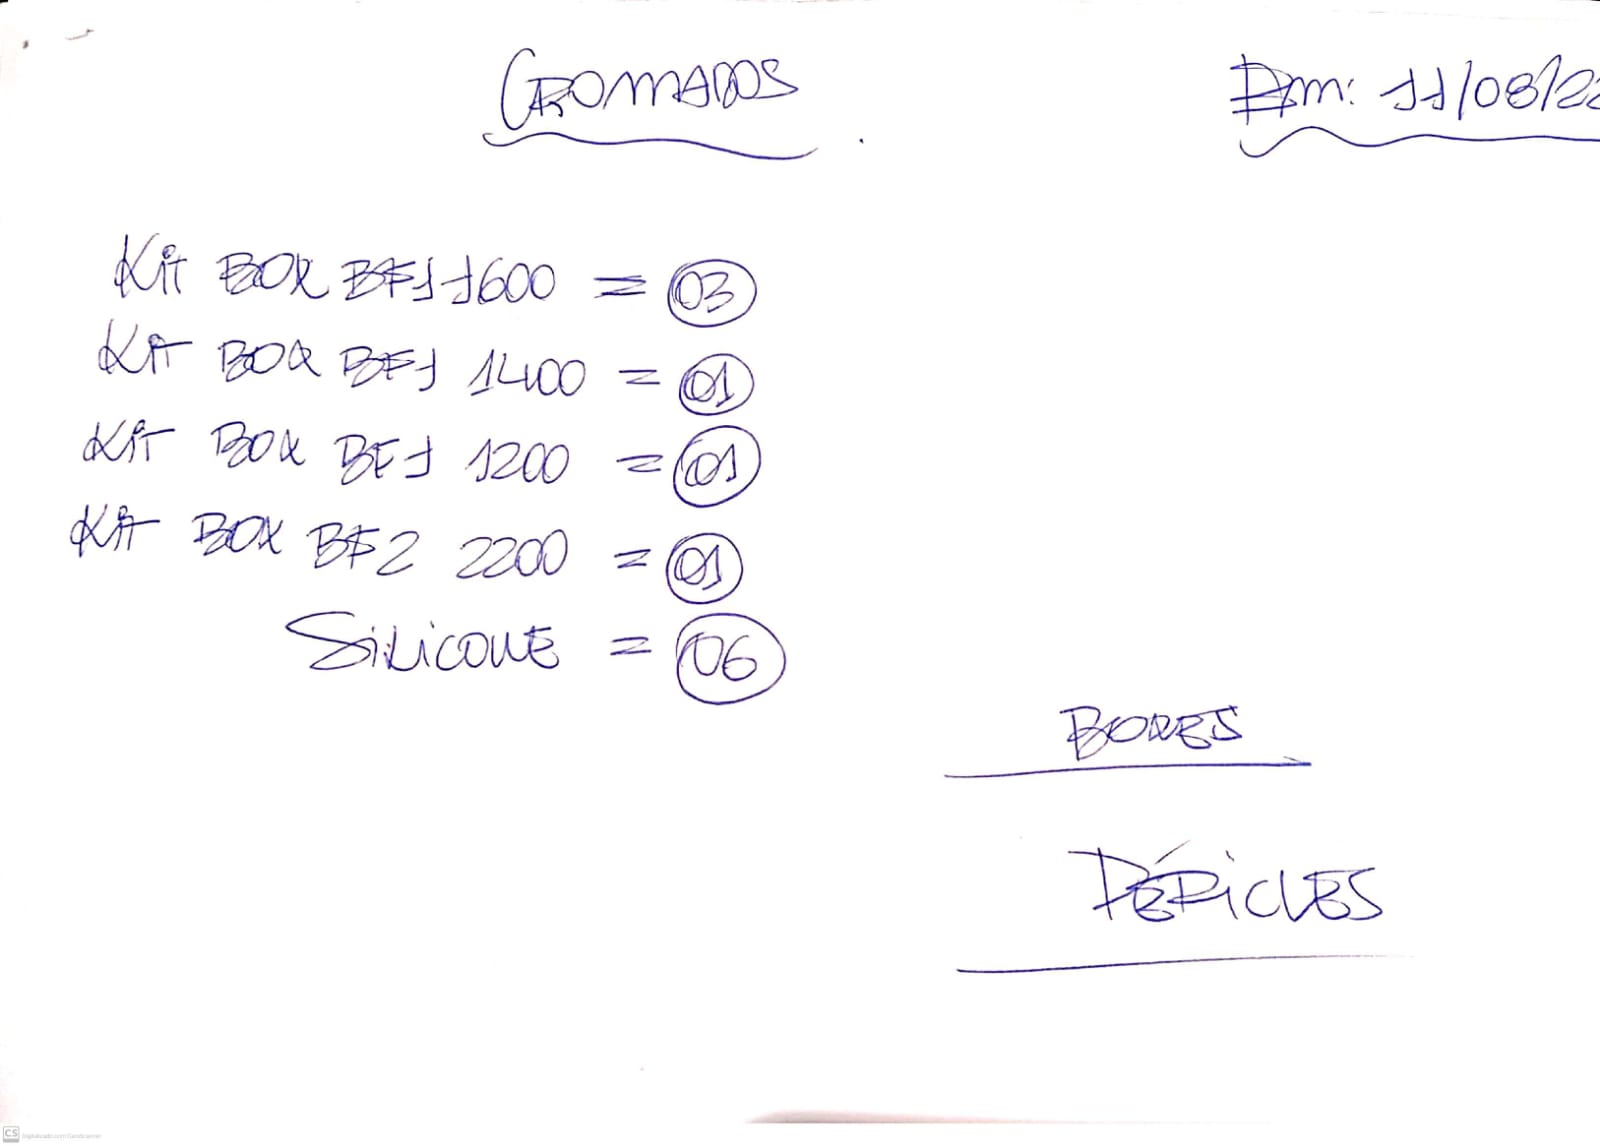 CROMADOS
Em: 11/08/22
Kit BOX BF1 1600 = 03
Kit BOX BF1 1400 = 01
Kit BOX BF1 1200 = 01
Kit BOX BF2 2200 = 01
SiLiCONE = 06
BOXES
PÉRiCLES
CS Digitalizado com CamScanner